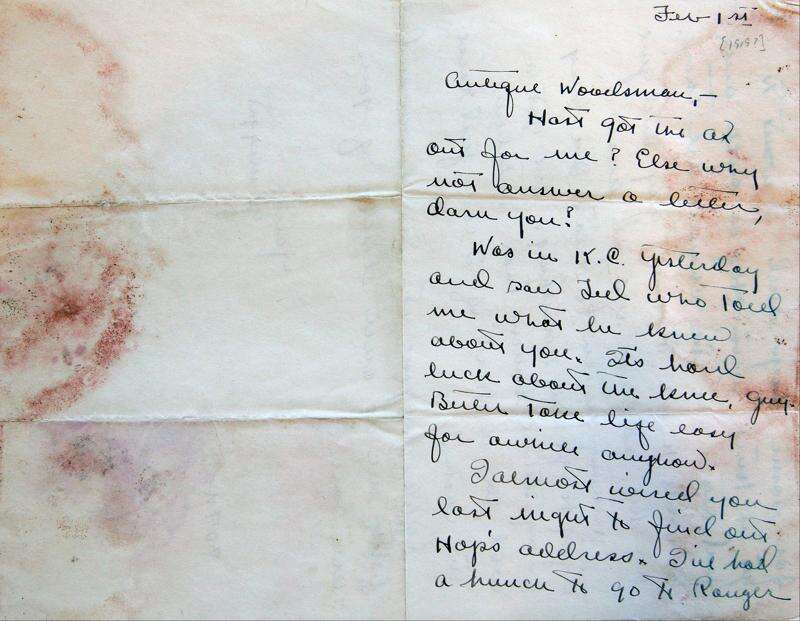 Feb 1st
[1919?]
Antique Woodsman,—
Hast got the ax
out for me? Else why
not answer a letter,
darn you?
Was in K.C. yesterday
and saw Ted who told
me what he knew
about you. Its hard
luck about the knee, guy.
Better take life easy
for awhile anyhow.
I almost wired you
last night to find out
Hop's address. I've had
a hunch to go to Ranger